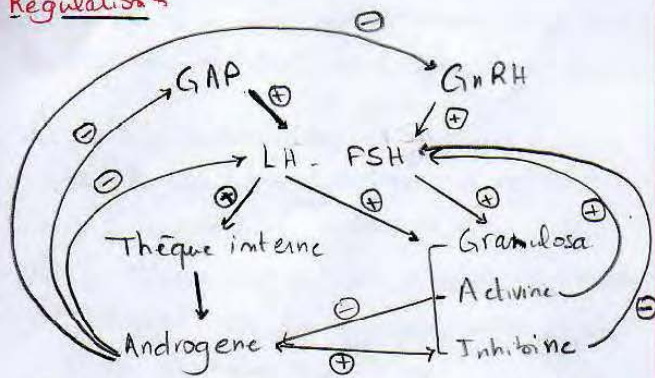 Régulation
⊖
GAP ⊕ GnRH
⊖ ⊕
⊖ LH - FSH
⊕ ⊕ ⊕ ⊕
Thèque interne Gramulosa
⊖ Activine ⊖
Androgene ⊕ Inhibine